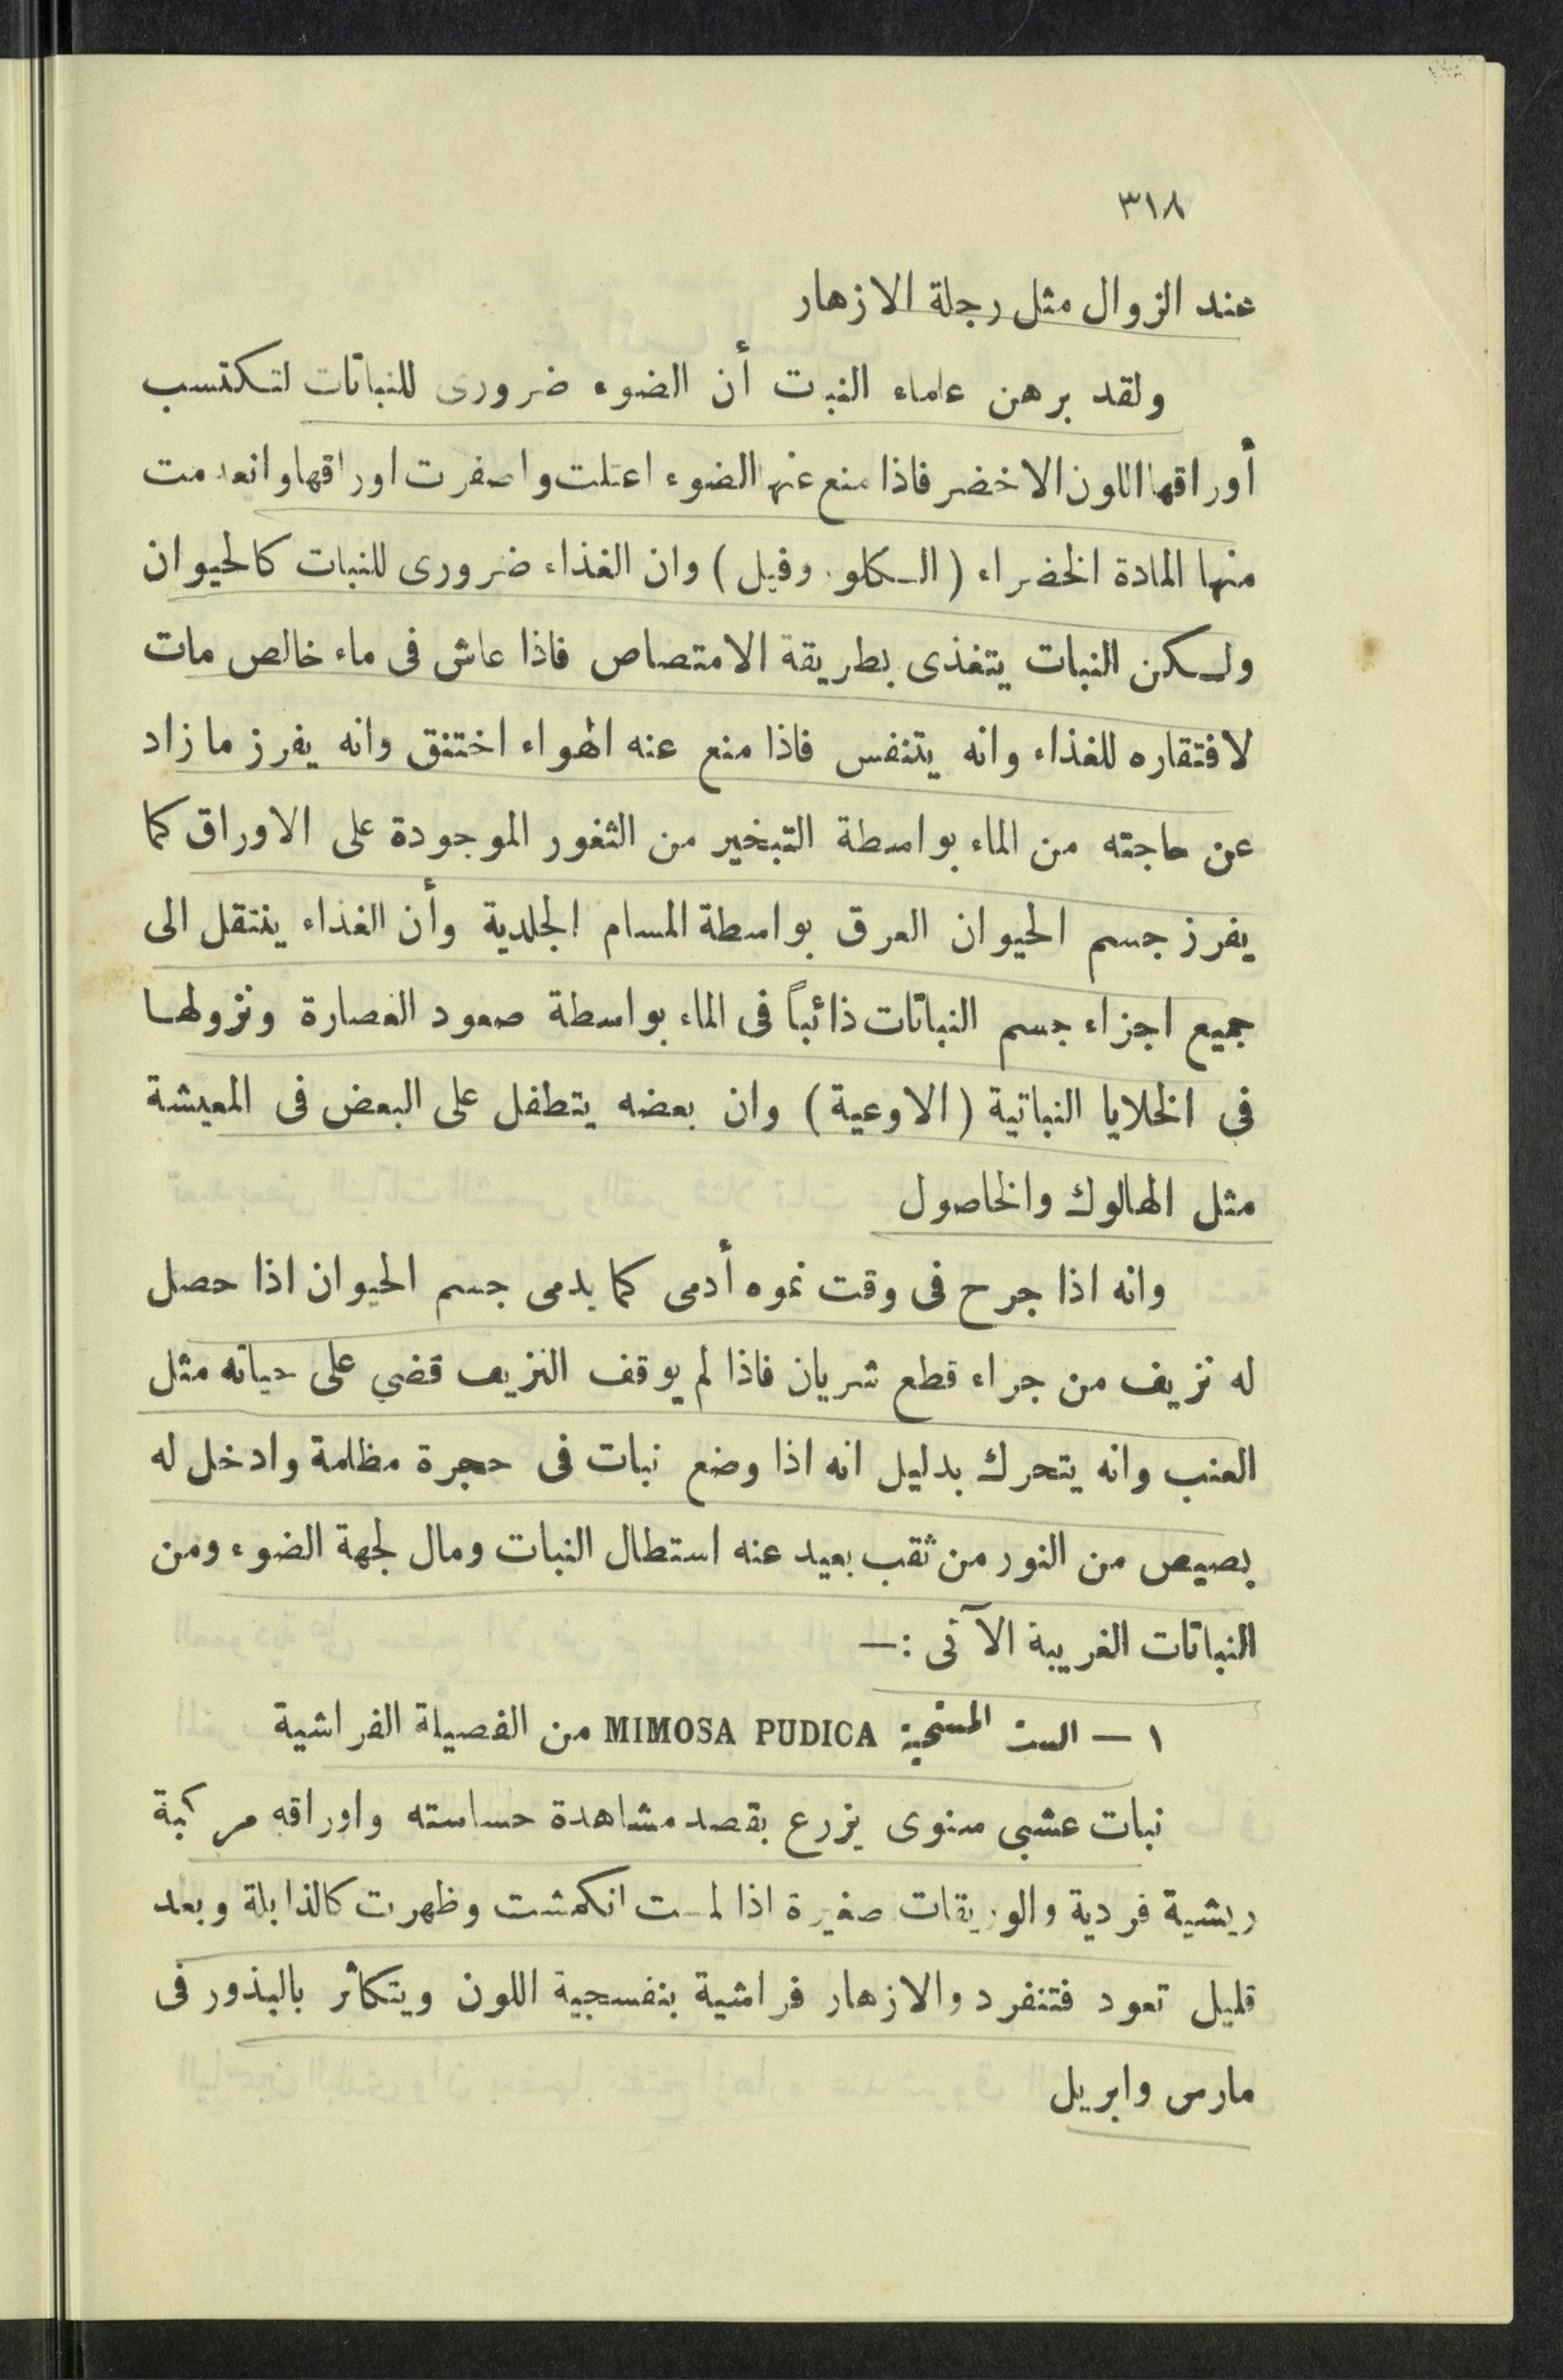 ٣١٨
عند الزوال مثل رجلة الازهار
ولقد برهن علماء النبت أن الضوء ضرورى للنباتات لتكتسب
أوراقها اللون الاخضر فاذا منع عنها الضوء اعتلت واصفرت اوراقها وانعدمت
منها المادة الخضراء (الكلوروفيل) وان الغذاء ضرورى للنبات كالحيوان
ولكن النبات يتغذى بطريقة الامتصاص فاذا عاش فى ماء خالص مات
لافتقاره للغذاء وانه يتنفس فاذا منع عنه الهواء اختنق وانه يفرز مازاد
عن حاجته من الماء بواسطة التبخير من الثغور الموجودة على الاوراق كما
يفرز جسم الحيوان العرق بواسطة المسام الجلدية وأن الغذاء ينتقل الى
جميع اجزاء جسم النباتات ذائباً فى الماء بواسطة صعود الغصارة ونزولها
فى الخلايا النباتية (الاوعية) وان بعضه يتطفل على البعض فى المعيشة
مثل الهالوك والخاصول
وانه اذا جرح فى وقت نموه أدمى كما يدمى جسم الحيوان اذا حصل
له نزيف من جراء قطع شريان فاذا لم يوقف النزيف قضي على حياته مثل
العنب وانه يتحرك بدليل انه اذا وضع نبات فى حجرة مظلمة وادخل له
بصيص من النور من ثقب بعيد عنه استطال النبات ومال لجهة الضوء ومن
النباتات الغريبة الآتى :—
١ — الست المستحية MIMOSA PUDICA من الفصيلة الفراشية
نبات عشبى سنوى يزرع بقصد مشاهدة حساسته واوراقه مركبة
ريشية فردية والوريقات صغيرة اذا لمست انكمشت وظهرت كالذابلة وبعد
قليل تعود فتنفرد والازهار فراشية بنفسجية اللون ويتكاثر بالبذور فى
مارس وابريل